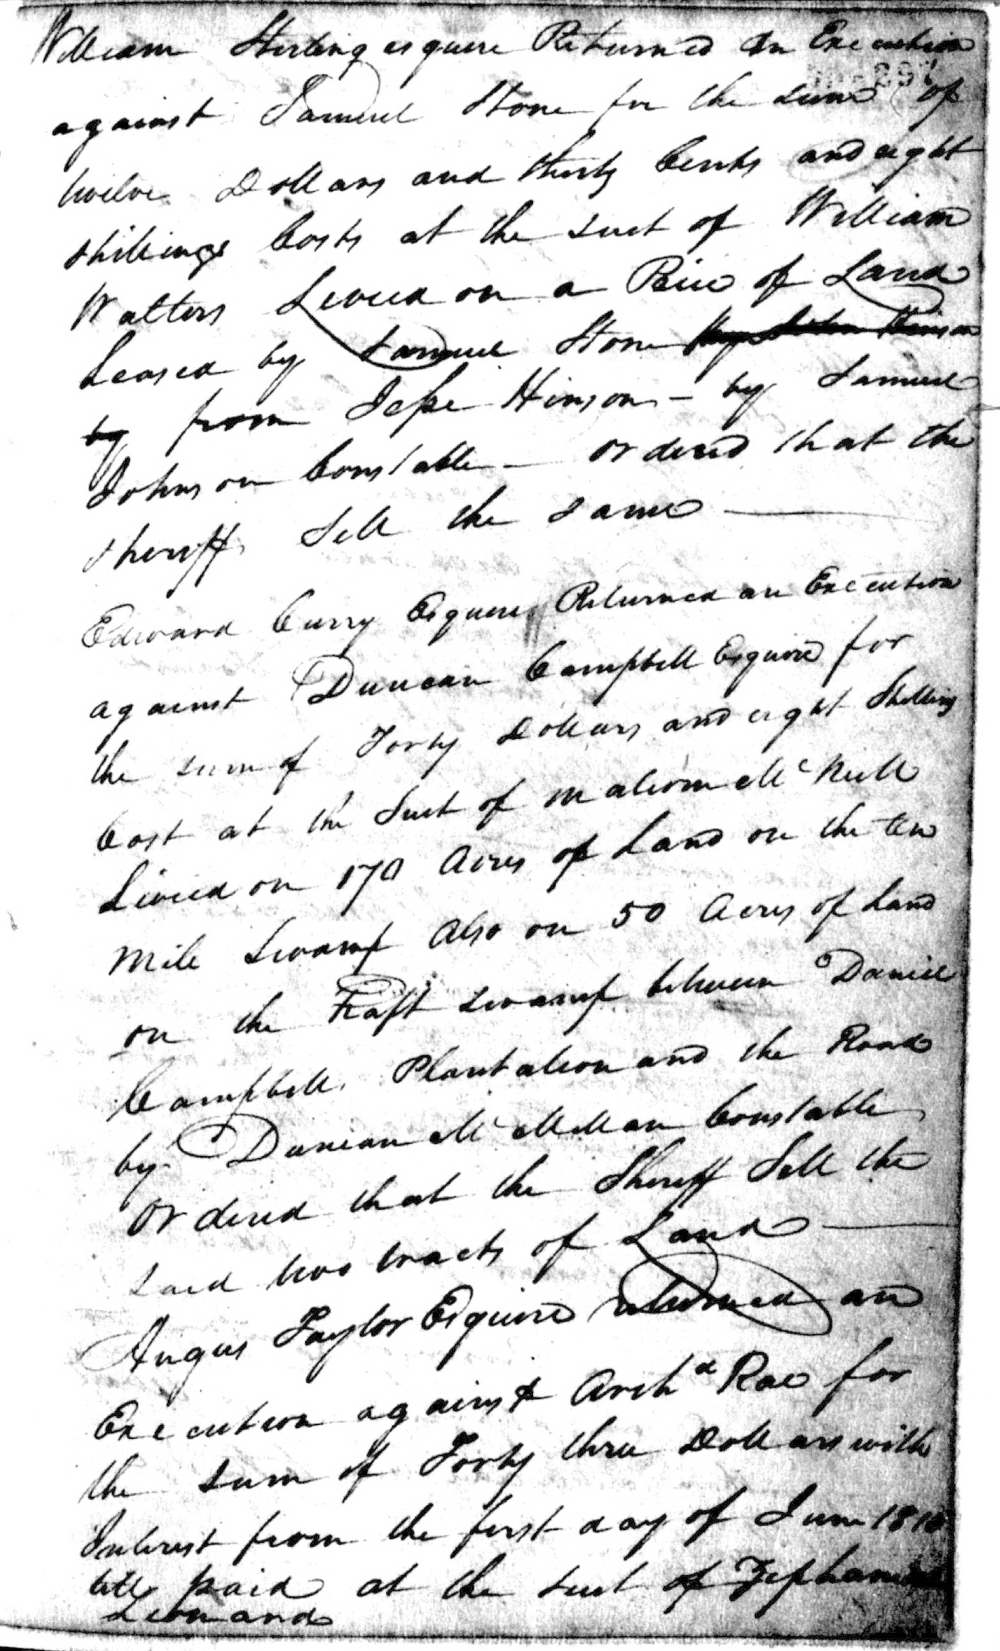 William Sterling esquire Returned An Execution
against Samuel Stone for the sum of
twelve Dollars and thirty Cents and eight
shillings Costs at the suit of William
Watters Levied on a Piece of Land
Leased by Samuel Stone by John Hinson
by from Jesse Hinson - by Samuel
Johnson Constable - ordered that the
sheriff Sell the same
Edward Curry Esquire Returned an Execution
against Duncan Campbell Esquire for
the sum of Forty Dollars and eight Shillings
Cost at the Suit of Malcom McNeill
Livied on 170 Acres of Land on the ten
mile Swamp Also on 50 Acres of Land
on the Raft swamp between Daniel
Campbell Plantation and the Road
by Duncan McMillan Constable
ordered that the Sheriff Sell the
said two tracts of Land
Angus Taylor Esquire returned an
Execution against Archd Rae for
the sum of Forty three Dollars with
Interest from the first day of June
till paid at the suit of
Leonard